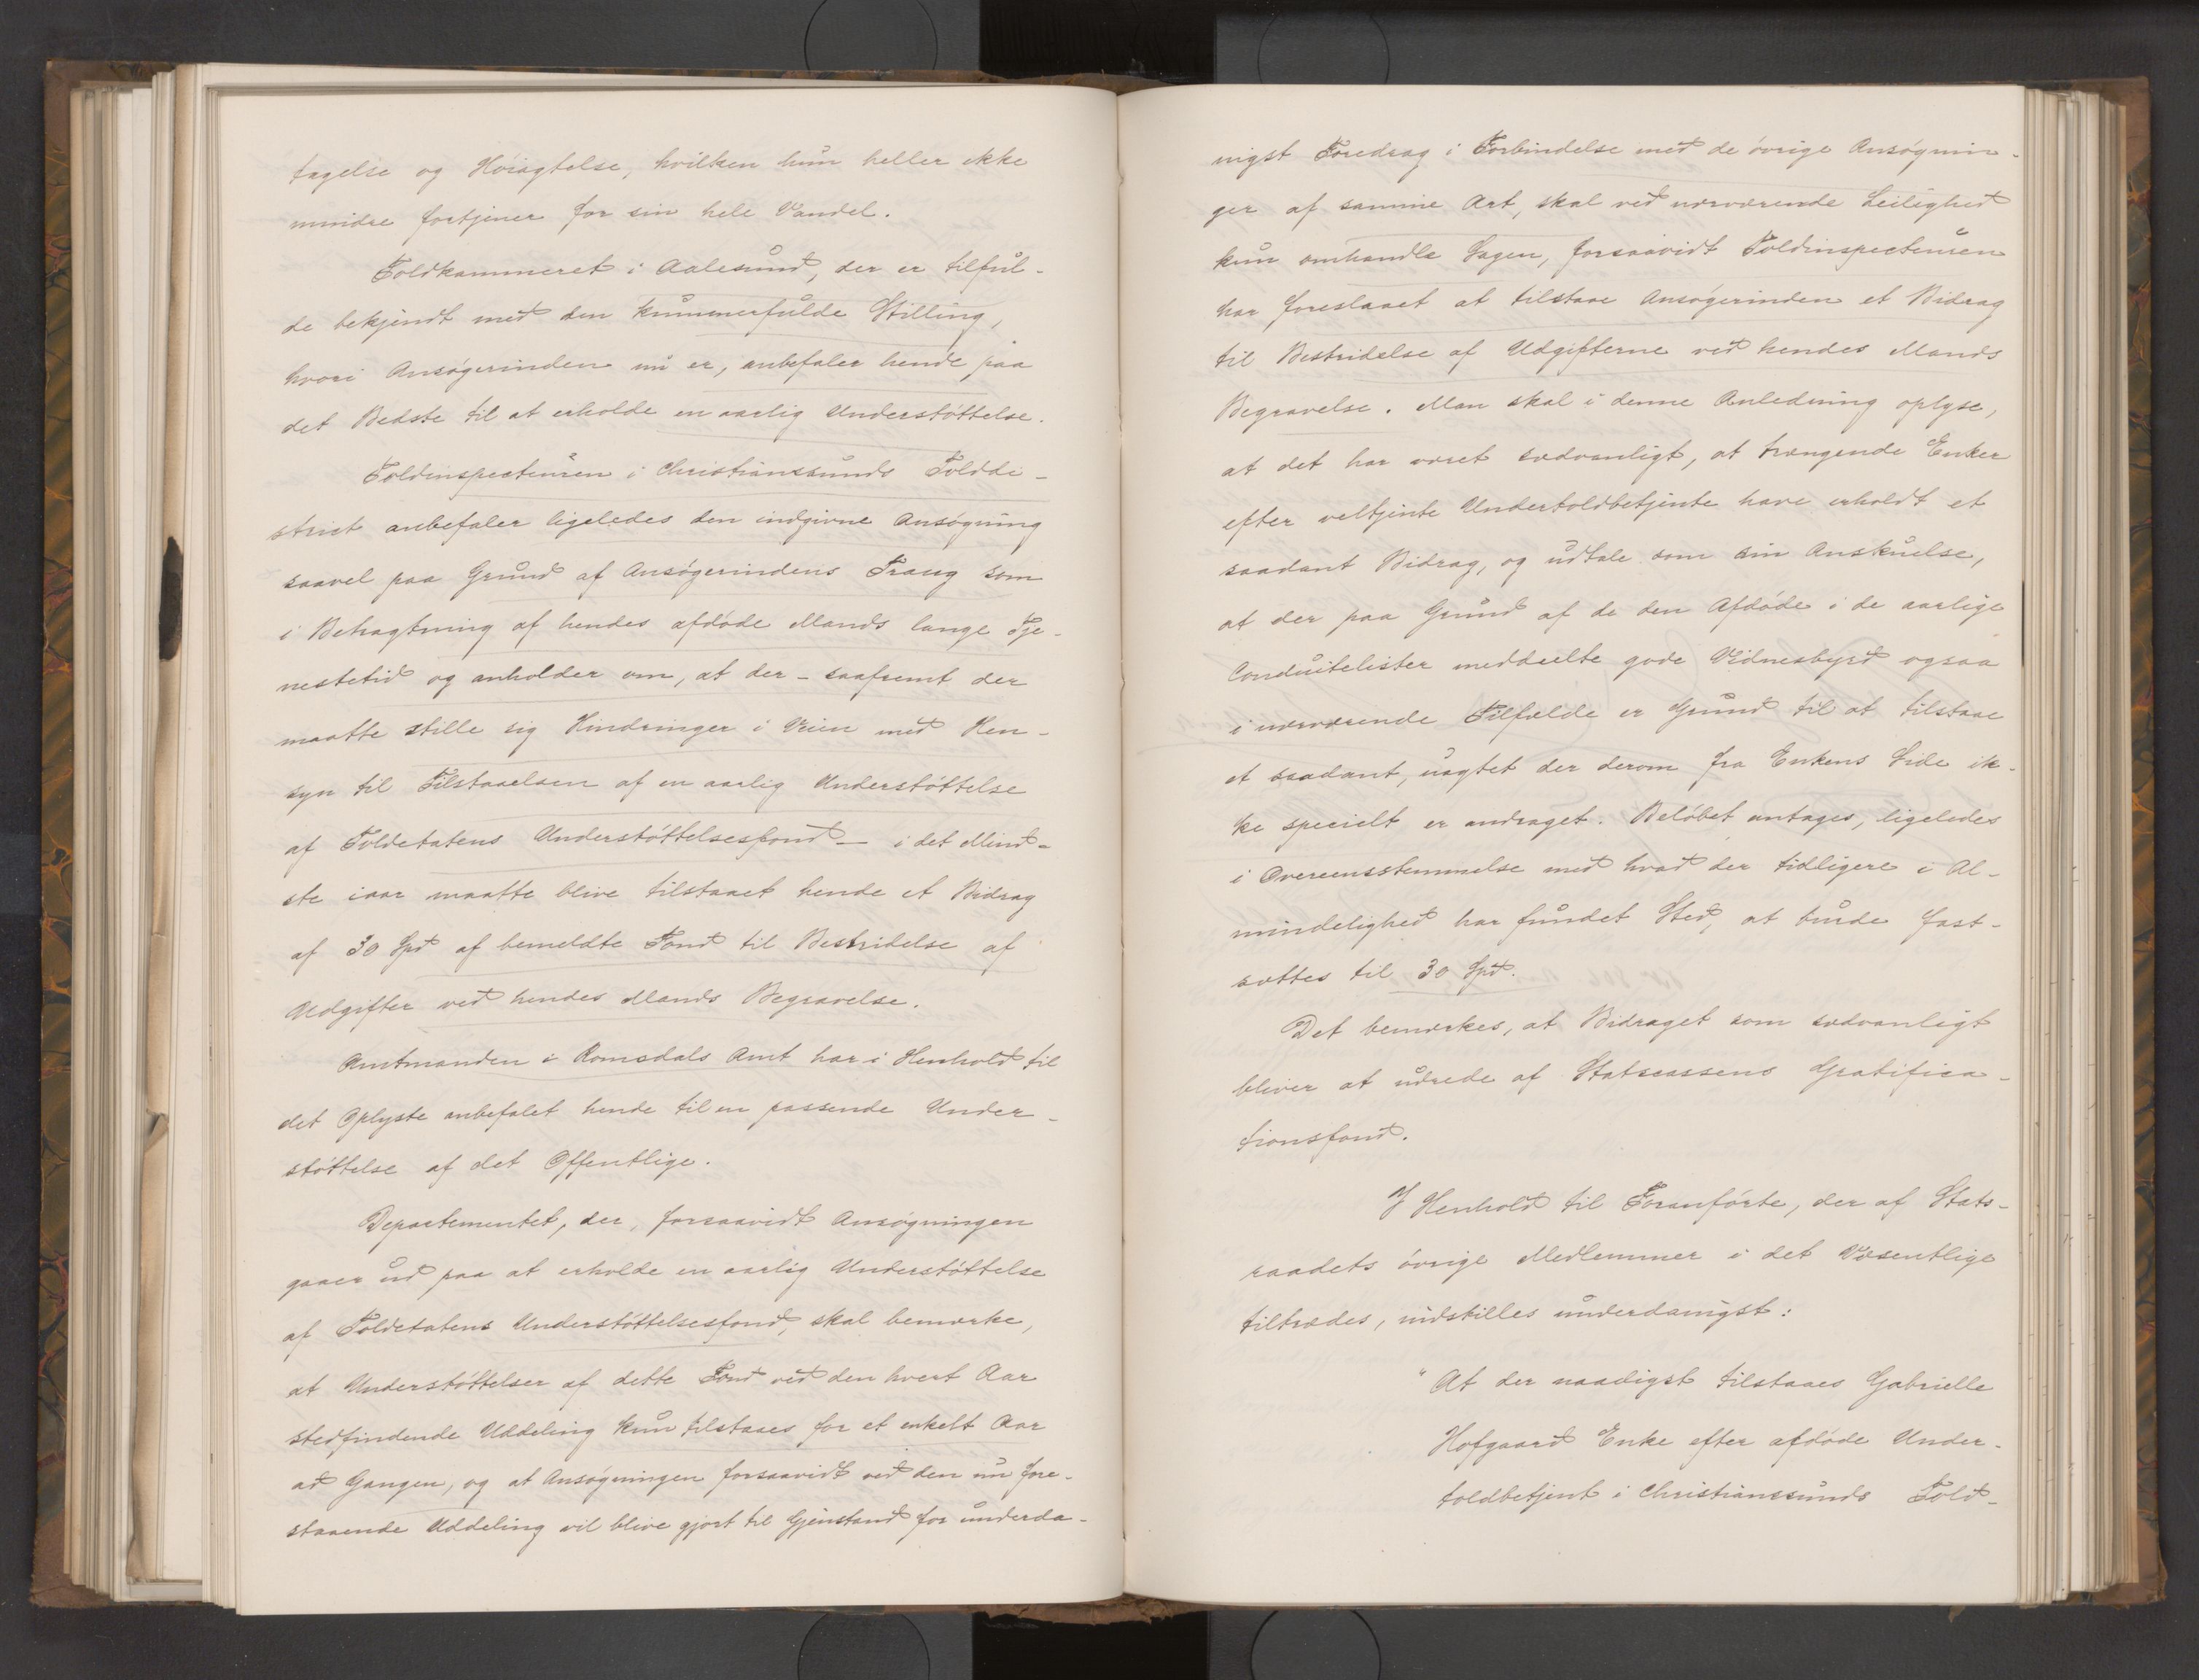 tagelse og Høiagtelse, hvilken hun heller ikke
mindre fortjener for sin hele Vandel.
Toldkammeret i Aalesund, der er tilful-
de bekjendt med den kummerfulde Stilling,
hvori Ansøgerinden nu er, anbefaler hende paa
det Bedste til at erholde en aarlig Understøttelse.
Toldinspecteuren i Christianssunds Toldди-
strict anbefaler ligeledes den indgivne Ansøgning
saavel paa Grund af Ansøgerindens Trang som
i Betragtning af hendes afdøde Mands lange Tje-
nestetid og anholder om, at der – saafremt der
maatte stille sig Hindringer i Veien med Hen-
syn til Tilstaaelsen af en aarlig Understøttelse
af Toldetatens Understøttelsesfond – i det Mind-
ste iaar maatte blive tilstaaet hende et Bidrag
af 30 Spd af bemeldte Fond til Bestridelse af
Udgifter ved hendes Mands Begravelse.
Amtmanden i Romsdals Amt har i Henhold til
det Oplyste anbefalet hende til en passende Under-
støttelse af det Offentlige.
Departementet, der, forsaavidt Ansøgningen
gaaer ud paa at erholde en aarlig Understøttelse
af Toldetatens Understøttelsesfond, skal bemærke,
at Understøttelser af dette Fond ved den hvert Aar
stedfindende Uddeling kun tilstaaes for et enkelt Aar
ad Gangen, og at Ansøgningen forsaavidt ved den nu fore-
staaende Uddeling vil blive gjort til Gjenstand for underda-
nigst Foredrag i Forbindelse med de øvrige Ansøgnin-
ger af samme Art, skal ved nærværende Leilighed
kun omhandle Sagen, forsaavidt Toldinspecteuren
har foreslaaet at tilstaae Ansøgerinden et Bidrag
til Bestridelse af Udgifterne ved hendes Mands
Begravelse. Man skal i denne Anledning oplyse,
at det har været sædvanligt, at trængende Enker
efter veltjente Undertoldbetjente have erholdt et
saadant Bidrag, og udtale som sin Anskuelse,
at der paa Grund af de den Afdøde i de aarlige
Conduitelister meddeelte gode Vidnesbyrd ogsaa
i nærværende Tilfælde er Grund til at tilstaae
et saadant, uagtet der derom fra Enkens Side ik-
ke specielt er andraget. Beløbet antages, ligeledes
i Overeensstemmelse med hvad der tidligere i Al-
mindelighed har fundet Sted, at burde fast-
sættes til 30 Spd.
Det bemærkes, at Bidraget som sædvanligt
bliver at udrede af Statscassens Gratifica-
tionsfond.
I Henhold til Foranførte, der af Stats-
raadets øvrige Medlemmer i det Væsentlige
tiltrædes, indstilles underdanigst:
"At der naadigst tilstaaes Gabrielle
Hofgaard Enke efter afdøde Under-
toldbetjent i Christianssunds Told-